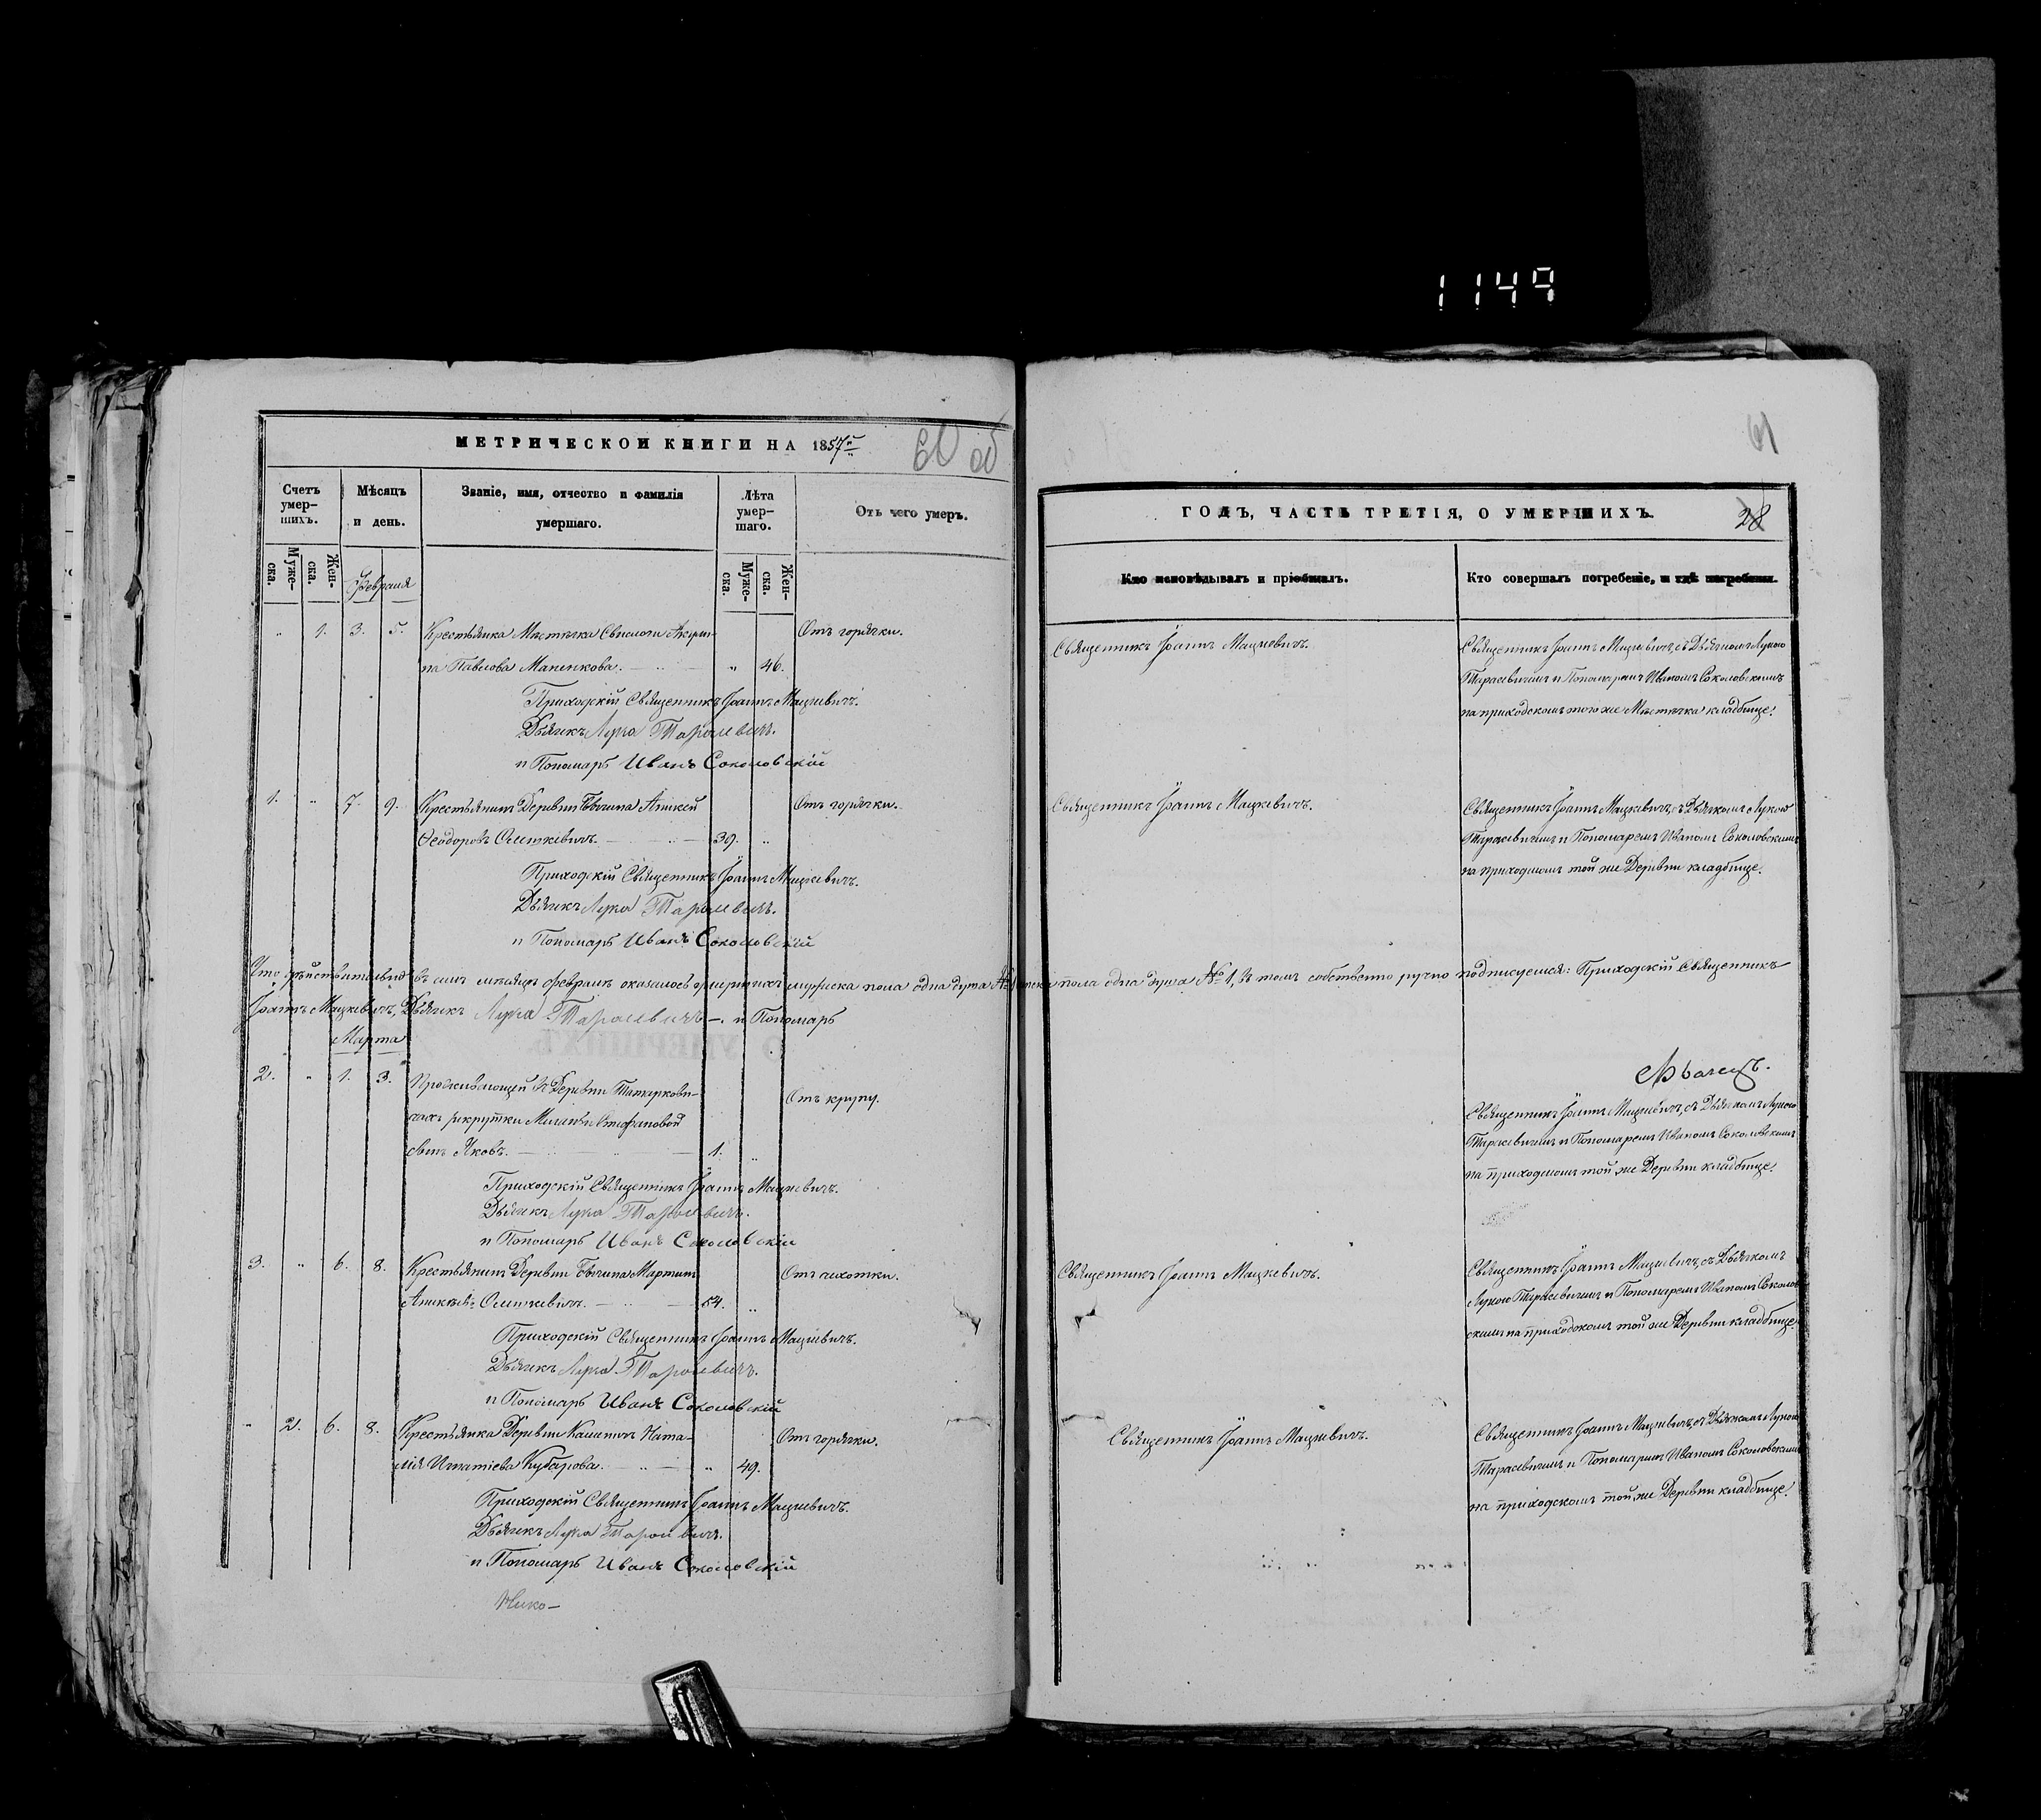 1149
МЕТРИЧЕСКОЙ КНИГИ НА 1857й
60 об
Счетъ умер-шихъ.
Мѣсяцъ и день.
Званіе, имя, отчество и фамилія умершаго.
Лѣта умер-шаго.
Отъ чего умеръ.
Муже-ска.
Жен-ска.
Февраля
Муже-ска.
Жен-ска.
" 1. 3. 5. Крестьянка Мѣстечка Свислочи Акули- Отъ горячки.
на Павлова Маненкова. " 46.
Приходскій Священникъ Іоаннъ Мацкевичъ.
Дьячекъ Лука Тарасевичъ.
и Пономарь Иванъ Соколовскій
1. " 7. 9. Крестьянинъ Деревни Бычина Аникей Отъ горячки.
Ѳеодоровъ 39. "
Приходскій Священникъ Іоаннъ Мацкевичъ.
Дьячекъ Лука Тарасевичъ.
и Пономарь Иванъ Соколовскій
Что дѣйствительно въ семъ мѣсяцѣ февралѣ оказалось умершихъ мужеска пола одна душа № 1, женска пола одна душа № 1, въ томъ собственно ручно подписуемся: Приходскій Священникъ
Іоаннъ Мацкевичъ, Дьячекъ Лука Тарасевичъ. и Пономарь
Марта
2. " 1. 3. Проживающей въ Деревни Татаркови-
чахъ рекрутки Стефановой Отъ крупу.
сынъ Яковъ. 1. "
Приходскій Священникъ Іоаннъ Мацкевичъ.
Дьячекъ Лука Тарасевичъ.
и Пономарь Иванъ Соколовскій
3. " 6. 8. Крестьянинъ Деревни Бычина Мартинъ Отъ чахотки.
54. "
Приходскій Священникъ Іоаннъ Мацкевичъ.
Дьячекъ Лука Тарасевичъ.
и Пономарь Иванъ Соколовскій
" 2. 6. 8. Крестьянка Деревни Ната- Отъ горячки.
лія Игнатіева Кубарова. " 49.
Приходскій Священникъ Іоаннъ Мацкевичъ.
Дьячекъ Лука Тарасевичъ.
и Пономарь Иванъ Соколовскій
61
ГОДЪ, ЧАСТЬ ТРЕТІЯ, О УМЕРШИХЪ.
28
Кто исповѣдывалъ и пріобщалъ.
Кто совершалъ погребеніе, и гдѣ погребены.
Священникъ Іоаннъ Мацкевичъ.
Священникъ Іоаннъ Мацкевичъ, съ Дьячкомъ Лукою
Тарасевичемъ и Пономаремъ Иваномъ Соколовскимъ
на приходскомъ того же Мѣстечка кладбище.
Священникъ Іоаннъ Мацкевичъ.
Священникъ Іоаннъ Мацкевичъ, съ Дьячкомъ Лукою
Тарасевичемъ и Пономаремъ Иваномъ Соколовскимъ
на приходскомъ той же Деревни кладбище.
Священникъ Іоаннъ Мацкевичъ, съ Дьячкомъ Лукою
Тарасевичемъ и Пономаремъ Иваномъ Соколовскимъ
на приходскомъ той же Деревни кладбище.
Священникъ Іоаннъ Мацкевичъ.
Священникъ Іоаннъ Мацкевичъ, съ Дьячкомъ
Лукою Тарасевичемъ и Пономаремъ Иваномъ Соколов-
скимъ на приходскомъ той же Деревни кладбище.
Священникъ Іоаннъ Мацкевичъ.
Священникъ Іоаннъ Мацкевичъ, съ Дьячкомъ Лукою
Тарасевичемъ и Пономаремъ Иваномъ Соколовскимъ
на приходскомъ той же Деревни кладбище.